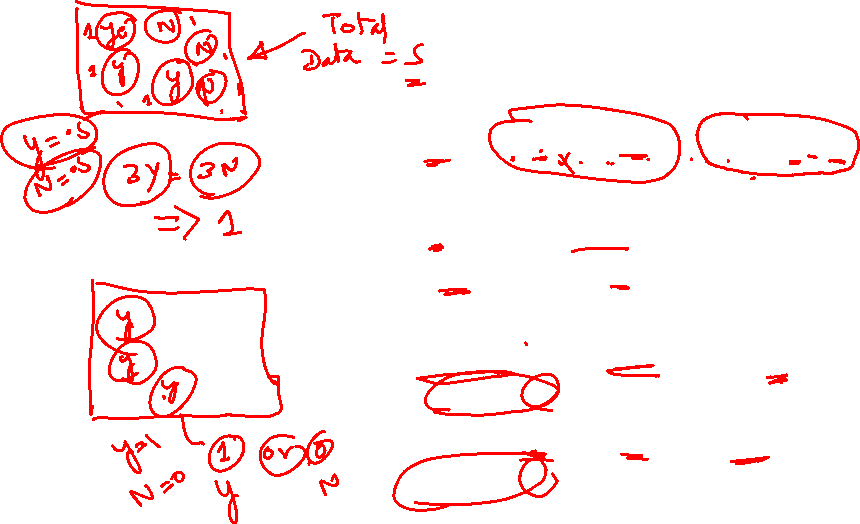 1 yes N
N
1 y 1 y N
Total
Data = S
y = .5
N = .5
3Y = 3N
=> 1
y
y
y
y=1
N=0
1 or 0
y N